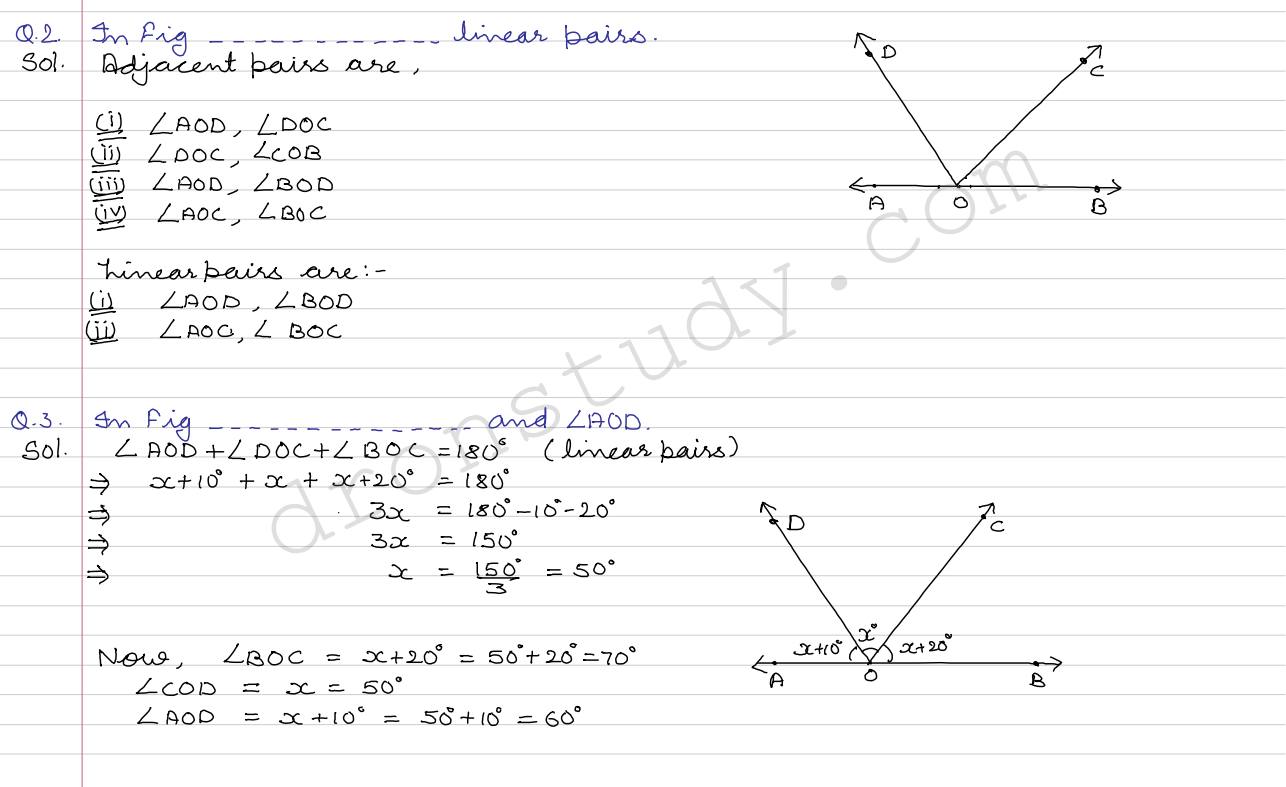 Q.2. In Fig _ _ _ _ _ _ _ _ _ _ _ _ linear pairs.
Sol. Adjacent pairs are,
(i) ∠AOD, ∠DOC
(ii) ∠DOC, ∠COB
(iii) ∠AOD, ∠BOD
(iv) ∠AOC, ∠BOC
D
C
A
O
B
Linear pairs are:-
(i) ∠AOD, ∠BOD
(ii) ∠AOC, ∠BOC
Q.3. In Fig _ _ _ _ _ _ _ _ _ _ _ _ _ and ∠AOD.
Sol. ∠AOD+∠DOC+∠BOC = 180° (linear pairs)
⇒ x+10° + x + x+20° = 180°
⇒ 3x = 180°-10°-20°
⇒ 3x = 150°
⇒ x = 150°/3 = 50°
Now, ∠BOC = x+20° = 50°+20° = 70°
∠COD = x = 50°
∠AOD = x+10° = 50°+10° = 60°
D
C
x°
x+10°
x+20°
A
O
B
dronstudy.com